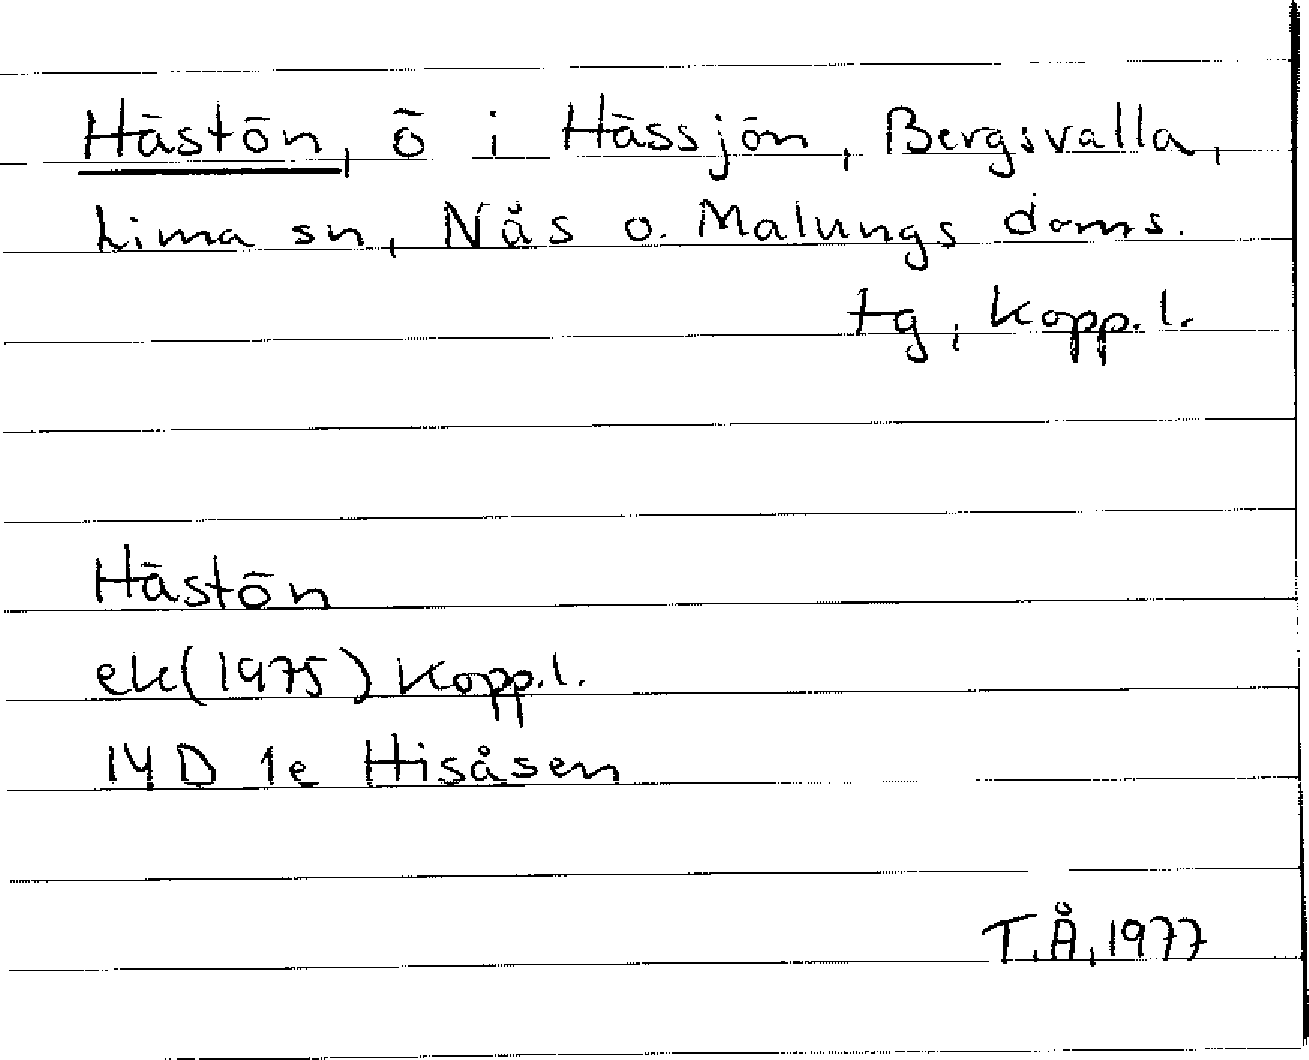 Hästön, ö i Hässjön, Bergsvalla,
Lima sn, Näs o. Malungs doms.
tg, Kopp.l.
Hästön
ek(1975) Kopp.l.
14 D 1e Hisåsen
T.Å, 1977